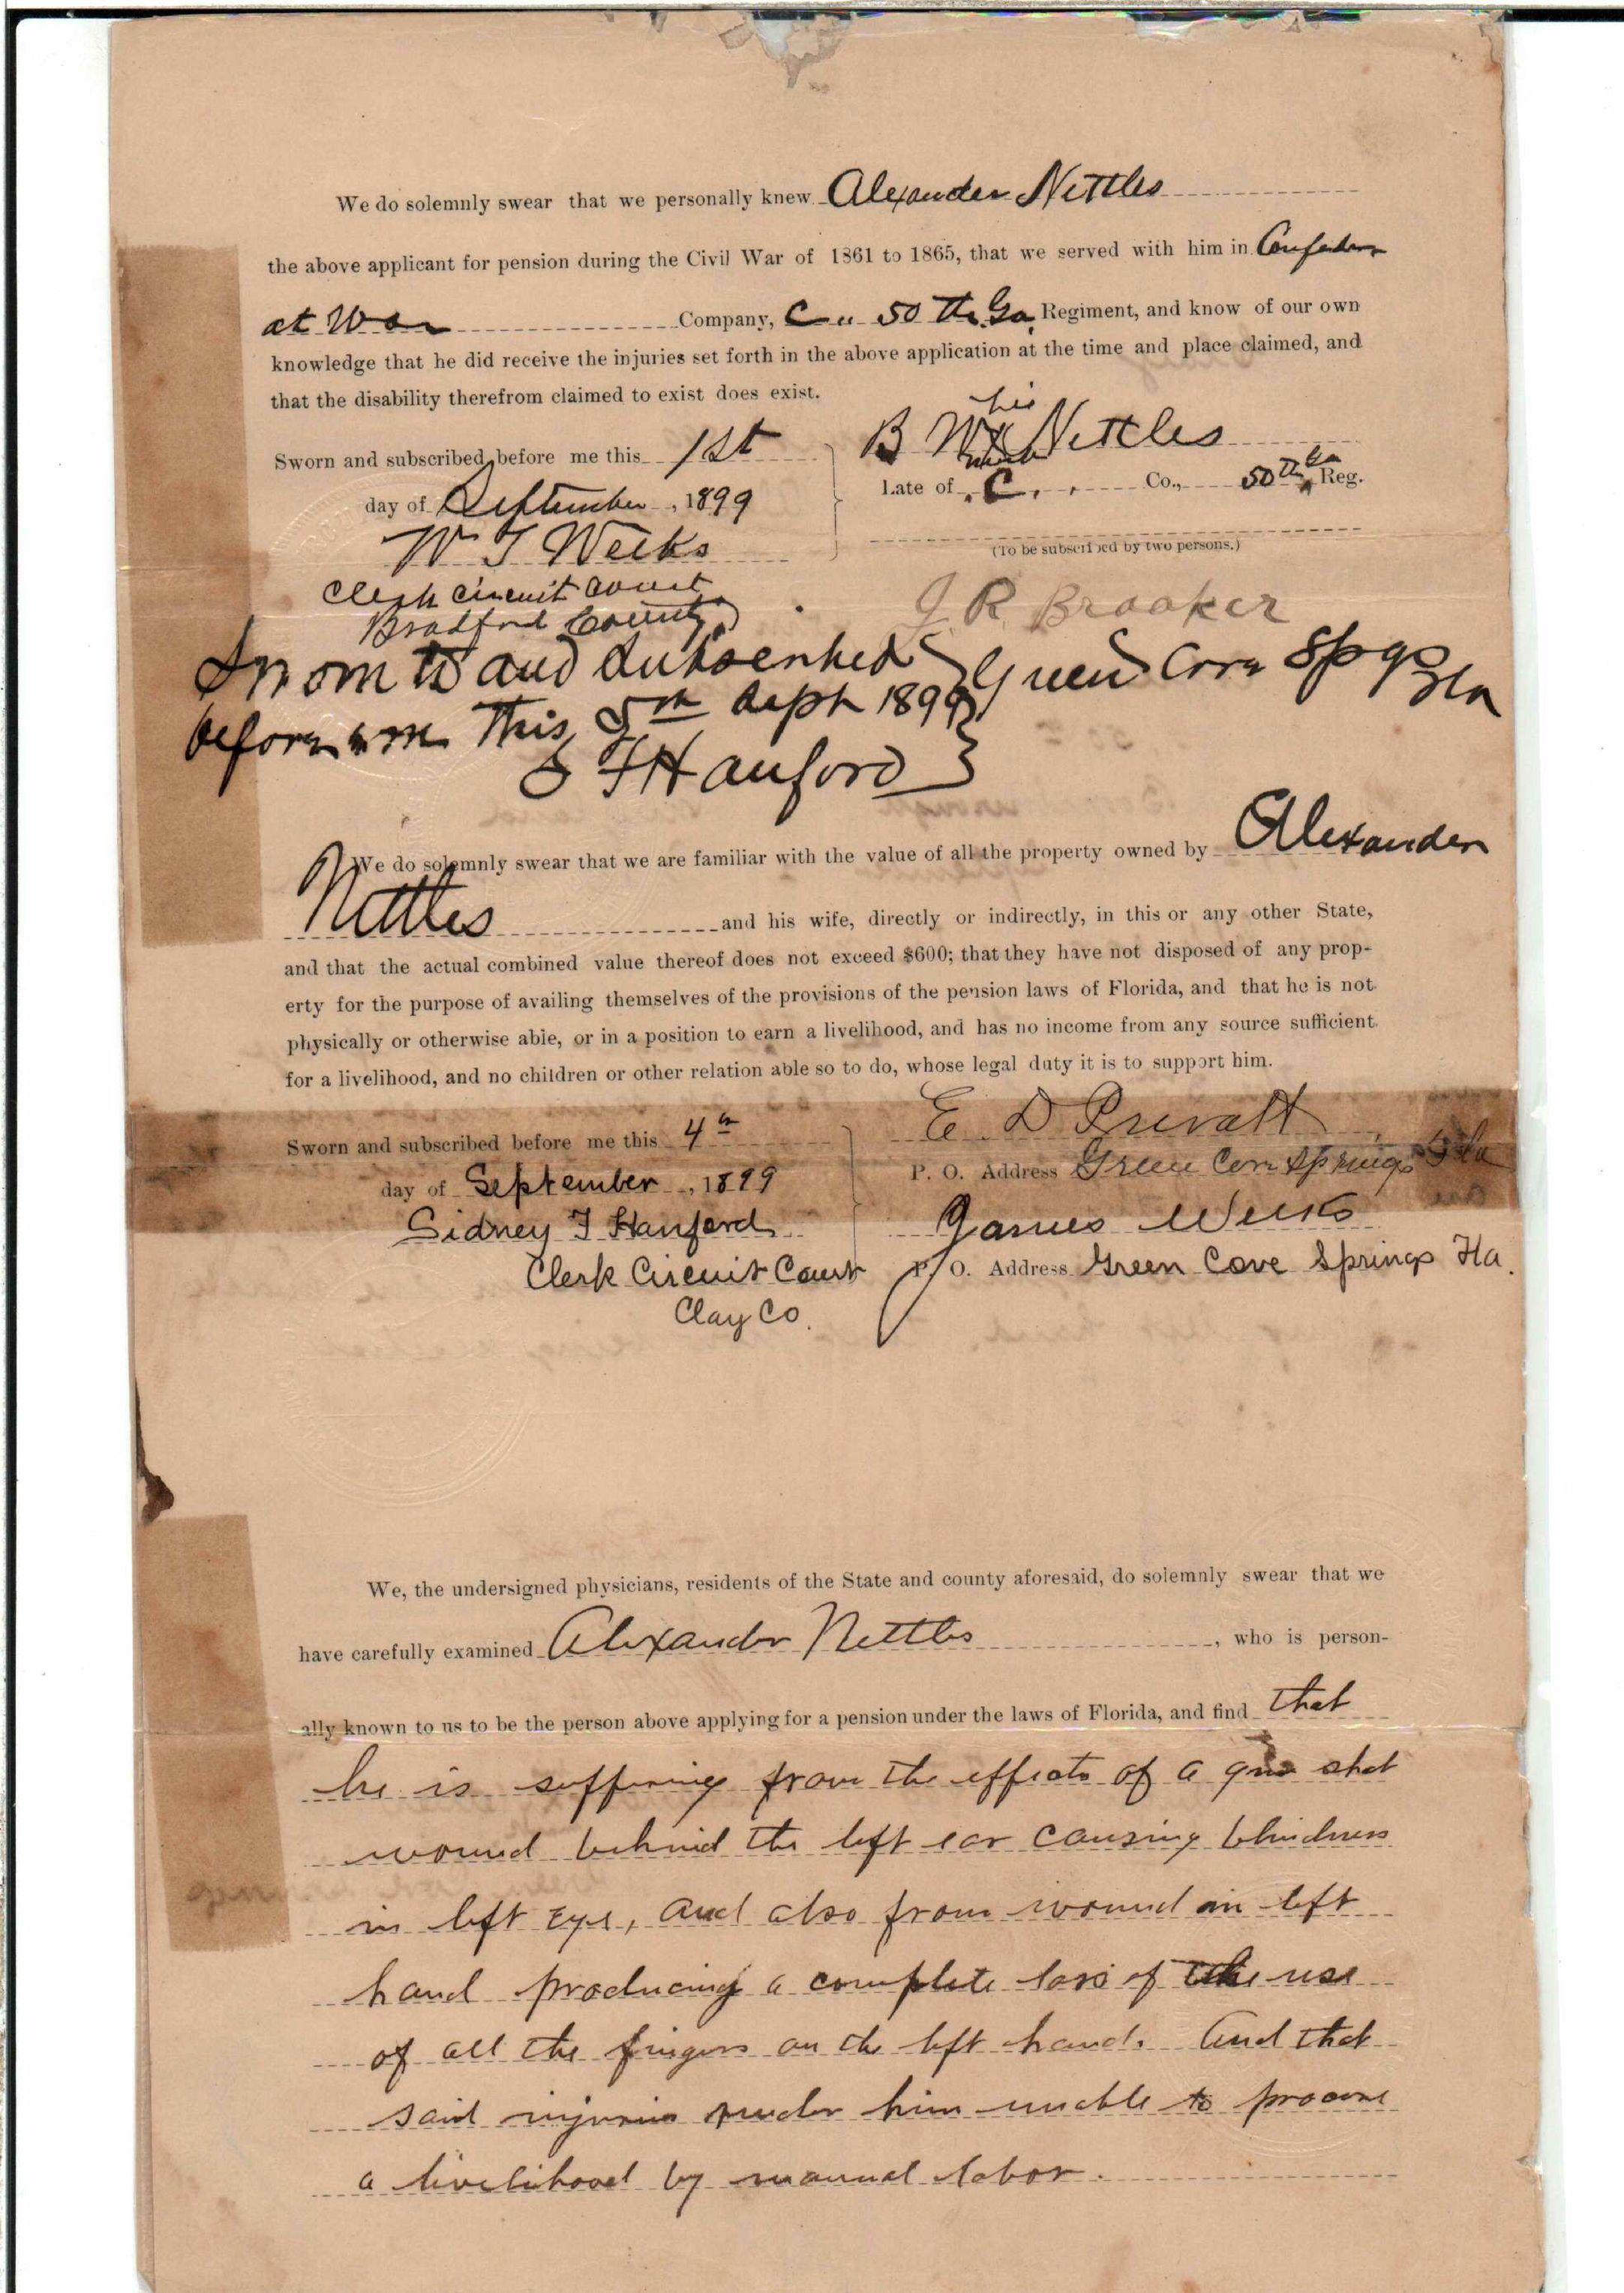 We do solemnly swear that we personally knew Alexander Nettles
the above applicant for pension during the Civil War of 1861 to 1865, that we served with him in
at War Company, C 50th Ga Regiment, and know of our own
knowledge that he did receive the injuries set forth in the above application at the time and place claimed, and
that the disability therefrom claimed to exist does exist.
his
Sworn and subscribed before me this 1st B W X Nettles
mark
day of September, 1899 Late of C. Co., 50th Ga Reg.
W T Weeks
(To be subscribed by two persons.)
Clerk Circuit Court
Bradford County J R Brooker
Sworn to and subscribed Green Cove Spgs Fla
before me this 5th Sept 1899
S F Hanford
We do solemnly swear that we are familiar with the value of all the property owned by Alexander
Nettles and his wife, directly or indirectly, in this or any other State,
and that the actual combined value thereof does not exceed $600; that they have not disposed of any prop-
erty for the purpose of availing themselves of the provisions of the pension laws of Florida, and that he is not
physically or otherwise able, or in a position to earn a livelihood, and has no income from any source sufficient
for a livelihood, and no children or other relation able so to do, whose legal duty it is to support him.
Sworn and subscribed before me this 4th E D Prevatt
day of September, 1899 P. O. Address Green Cove Springs Fla
Sidney F Hanford James Weeks
Clerk Circuit Court P. O. Address Green Cove Springs Fla.
Clay Co.
We, the undersigned physicians, residents of the State and county aforesaid, do solemnly swear that we
have carefully examined Alexander Nettles, who is person-
ally known to us to be the person above applying for a pension under the laws of Florida, and find that
he is suffering from the effects of a gun shot
wound behind the left ear causing blindness
in left Eye, and also from wound in left
hand producing a complete loss of the use
of all the fingers on the left hand. And that
said injuries render him unable to procure
a livelihood by manual labor.